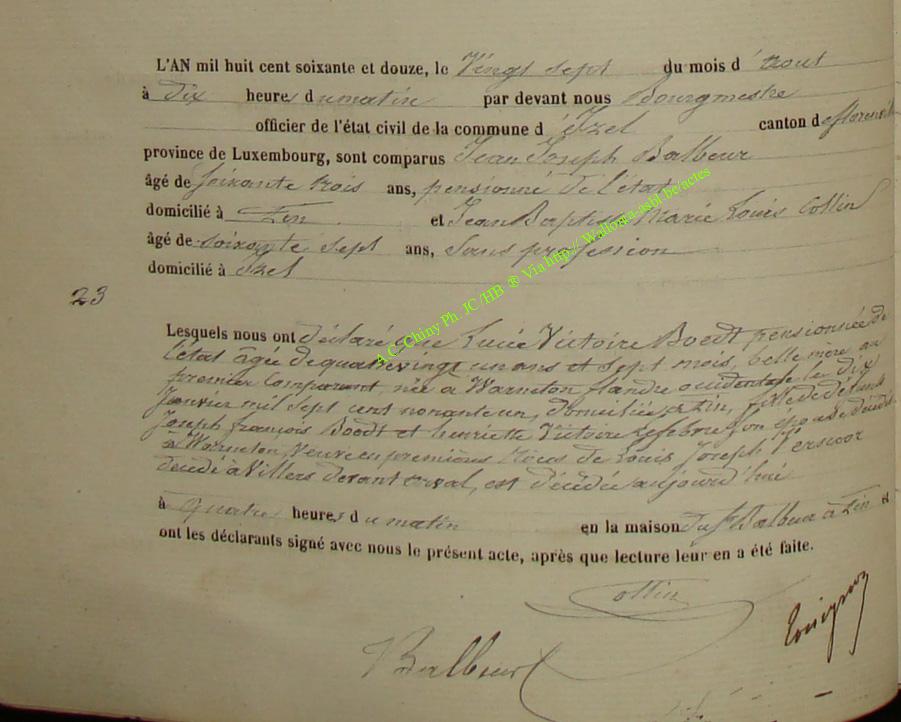 L'AN mil huit cent soixante et douze, le Vingt sept du mois d'aout
à dix heures du matin par devant nous Bourgmestre
officier de l'état civil de la commune d'Izel canton de florenville
province de Luxembourg, sont comparus Jean Joseph Balbeur
âgé de soixante trois ans, pensionné de l'état
domicilié à Pin et Jean Baptiste Marie Louis Collin
âgé de soixante sept ans, sans profession
domicilié à Izel
23
Lesquels nous ont déclaré que Lucie Victoire Boedt pensionnée de
l'état agée de quatrevingt un ans et sept mois, belle mère au
premier comparant, née à Warneton flandre occidentale le dix
Janvier mil sept cent nonante un, domiciliée à Pin, fille de défunts
Joseph françois Boedt et henriette Victoire Lefebre son épouse décédés
à Warneton, Veuve en premières Noces de Louis Joseph
décédé à Villers devant orval, est décédée aujourd'hui
à quatre heures du matin en la maison du sr Balbeur à Pin et
ont les déclarants signé avec nous le présent acte, après que lecture leur en a été faite.
Collin
Balbeur
A.C. Chiny Ph JC/HB ® Via http:// Wallonia-asbl be/actes